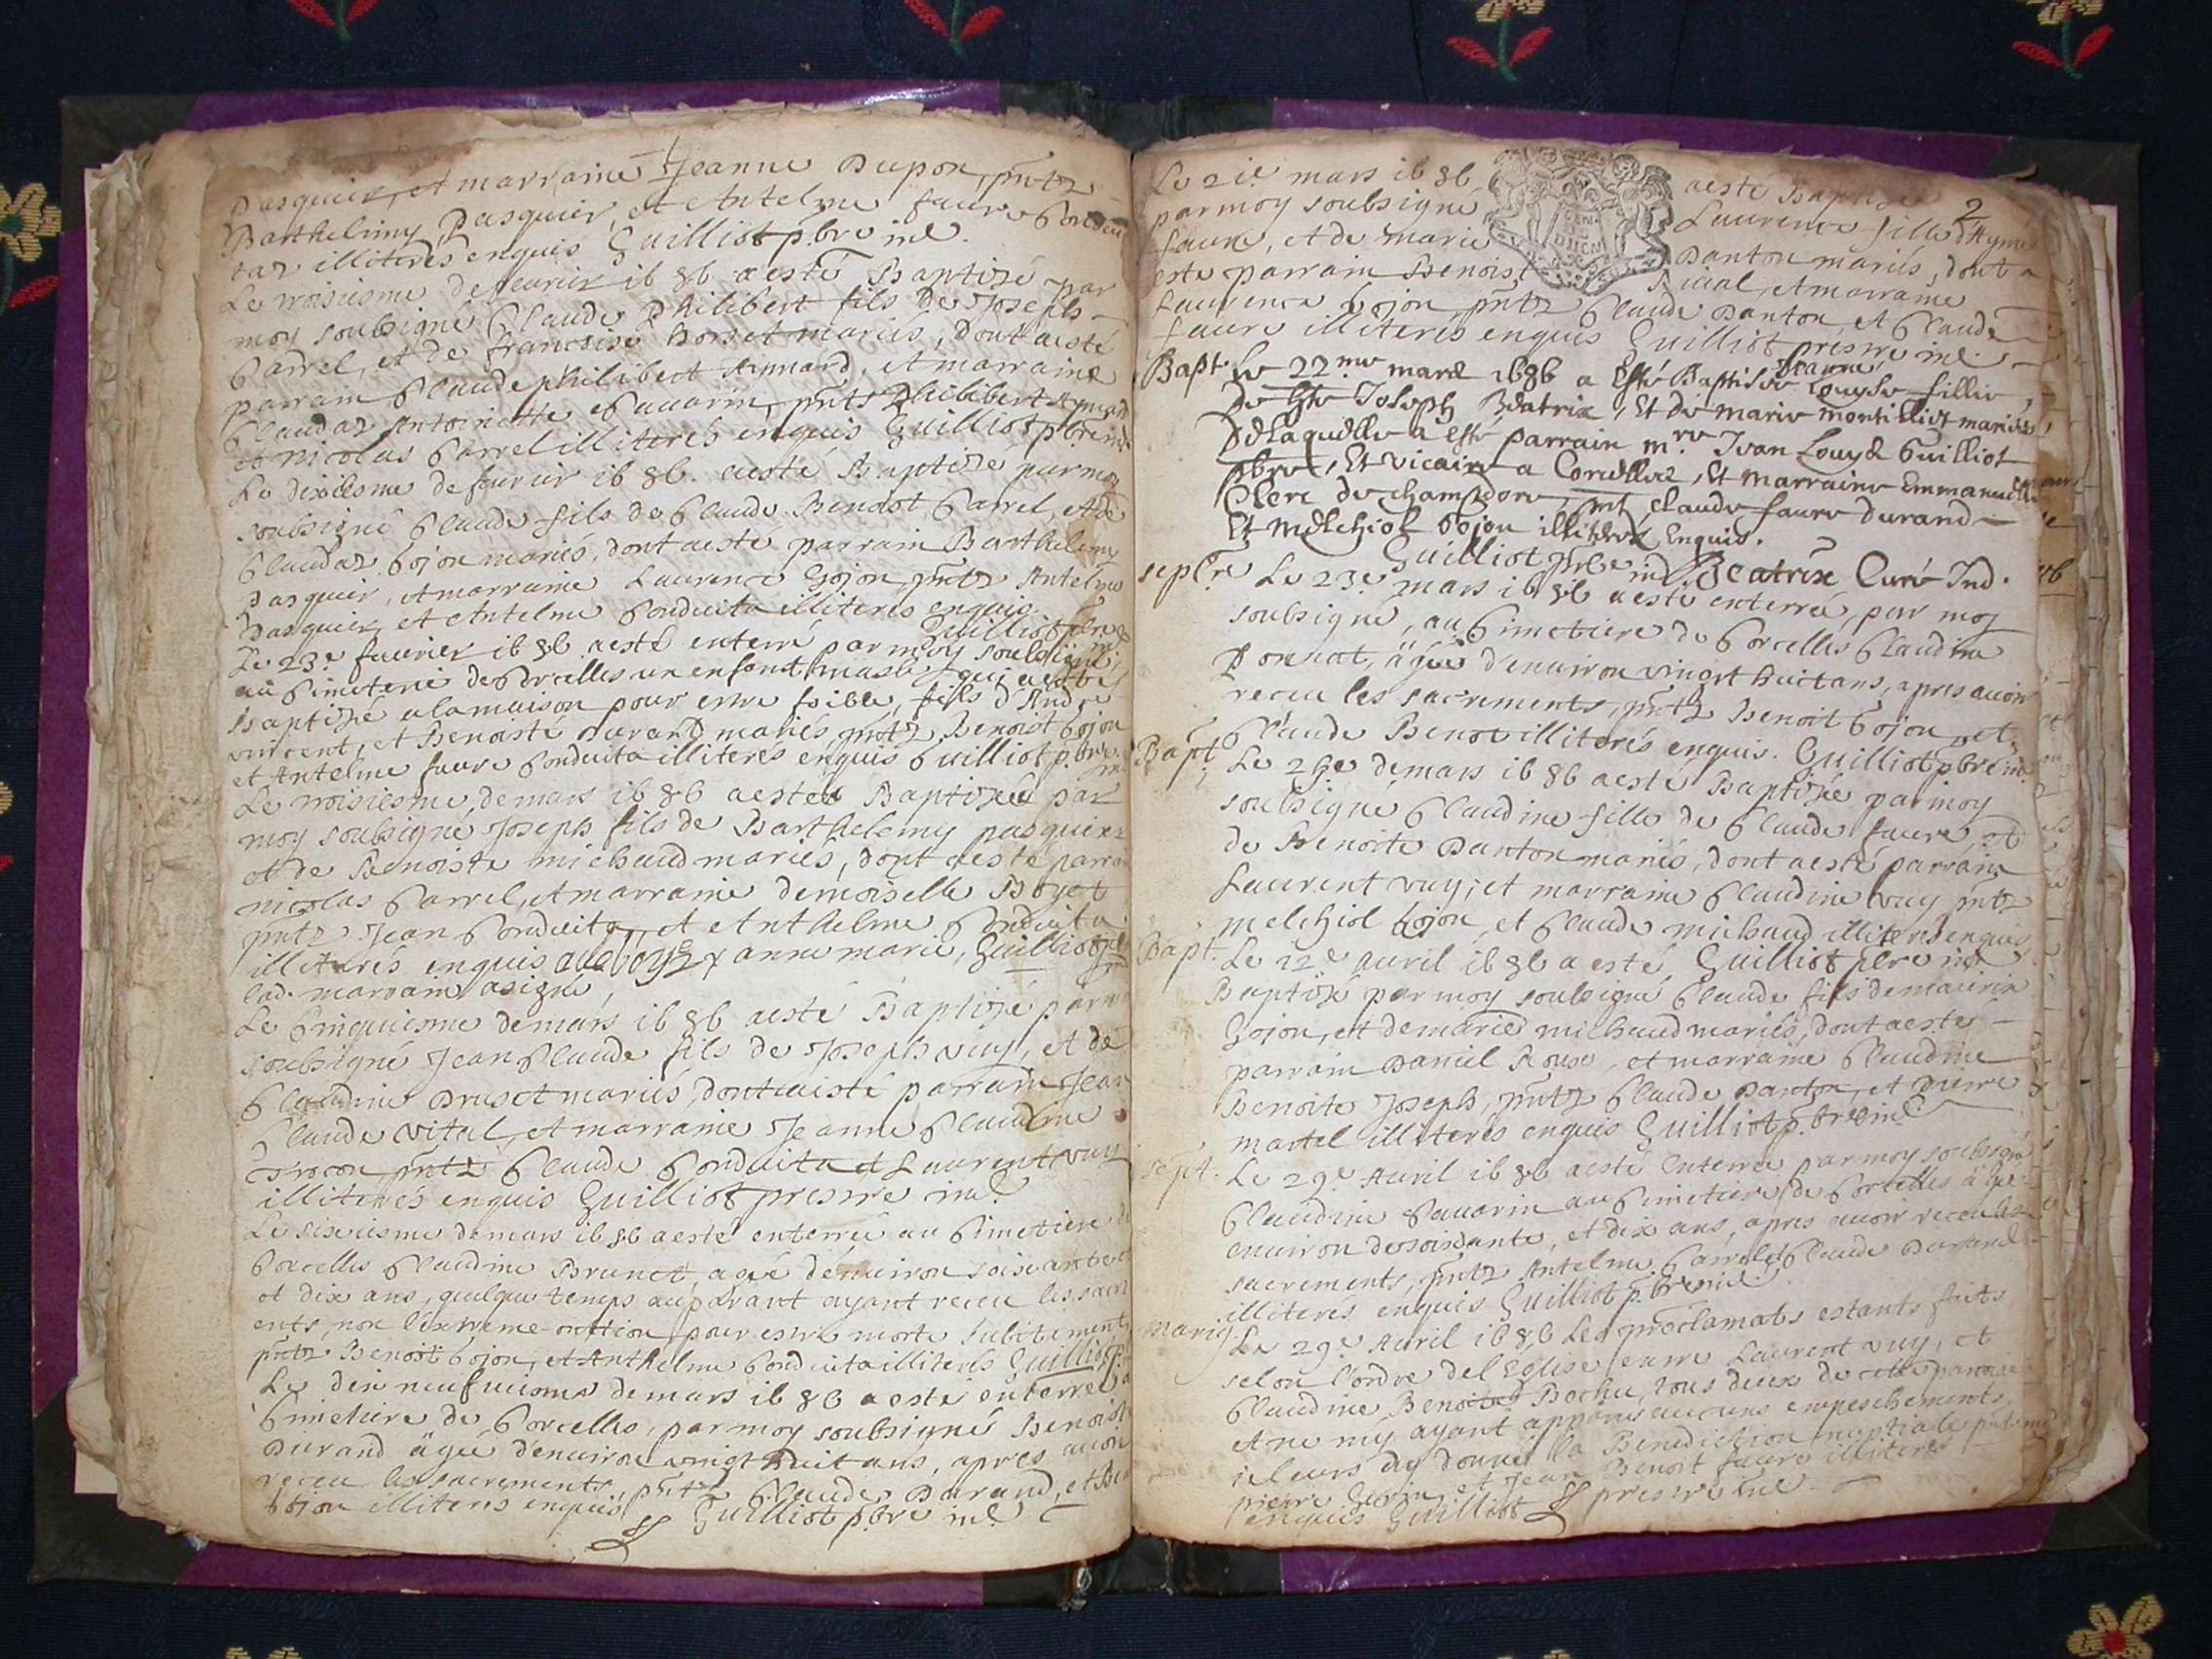 pasquier, et marraine Jeanne Dupon, pntz
Barthelimy Pasquier, et Antelme faure
taz illiterés enquis Guilliot pbre ind.
Le troisiesme de feurier 1686 a esté Baptizé par
moy soubsigné Claude Philibert fils de Joseph
Carrel, et de francoise borset mariés, dont a esté
parrain Claude philibert Aymard, et marraine
Claudaz Antoinette Sauarin, pnts Philibert Aymard
et nicolas Carrel illiterés enquis Guilliot pbre ind.
Le dixiesme de feurier 1686. a esté Baptizé par moy
soubsigné Claude fils de Claude Benoist Carrel, et de
Claudaz Gojon mariés, dont a esté parrain Barthelemy
pasquier, et marraine Laurence Gojon, pntz Antelme
Pasquier, et Antelme Conduita illiterés enquis
Guilliot pbre
Le 23e feurier 1686 a esté enterré par moy soubsigné
au Cimetiere de Corcelles un enfant masle qui a esté
Baptizé a la maison pour estre foible, fils d'André
vincent, et Benoisté durand mariés pntz Benoist Gojon
et Antelme faure Conduita illiterés enquis Guilliot pbre
Le troisiesme de mars 1686 a esté Baptizé par
moy soubsigné Joseph fils de Barthelemy pasquier
et de Benoiste michaud mariés, dont a esté parrain
nicolas Carrel, et marraine demoiselle Boyet
pntz Jean Conduita, et Anthelme Conduita
illiterés enquis anne marie, Guilliot
lad. marraine a signé,
Le Cinquiesme de mars 1686 a esté Baptizé par moy
soubsigné Jean Claude fils de Joseph vuy, et de
Claudine Druset mariés, dont a esté parrain Jean
Claude vital, et marraine Jeanne Claudine
pntz Claude Conduita et Laurent vuy
illiterés enquis Guilliot prestre ind.
Le sixiesme de mars 1686 a esté enterrée au Cimetiere de
Corcelles Claudine Brunet, agée d'enuiron soixante
et dix ans, quelque temps auparant ayant receu les sacrem
ents, non l'extreme-onction pour estre morte subitement
pntz Benoist Gojon, et Anthelme Conduita illiterés Guilliot
Le dix neufuiesme de mars 1686 a esté enterré a
Cimetiere de Corcelles, par moy soubsigné Benoist
Durand âgé d'enuiron vingt huit ans, apres auoir
receu les sacrements, pntz Claude Durand, et Be
Gojon illiterés enquis Guilliot pbre ind.
2
Le 21e mars 1686 a esté Baptizée
par moy soubsigné Laurence fille d'Aymé
faure, et de marie Danton mariés, dont a
esté parrain Benoist Vital, et marraine
Laurence Gojon, pntz Claude Danton, et Claude
faure illiterés enquis Guilliot prestre ind.
Bapt. Le 22me mars 1686 a esté Baptisée Jeanne Louyse fillie
de Joseph Beatrix, Et de marie montilliet mariés
De laquelle a esté parrain mre Jean Louys Guilliot
pbre, Et vicaire a Corcelles, Et marraine Emmanuelle
Clerc de champdore, pnt claude faure durand
Et Melchiol Gojon illiterés Enquis.
Guilliot pbre ind. Beatrix Curé Ind.
sepre Le 23e mars 1686 a esté enterrée, par moy
soubsigné, au Cimetiere de Corcelles Claudine
Ponnat, âgée d'enuiron vingt huict ans, apres auoir
receu les sacrements, pntz Benoit Gojon, et
Claude Benoit illiterés enquis. Guilliot pbre ind.
Bapt. Le de mars 1686 a esté Baptizée par moy
soubsigné Claudine fille de Claude faure, et
de Benoite Danton mariés, dont a esté parrain
Laurent vuy, et marraine Claudine vuy pntz
melchiol Gojon, et Claude michaud illiterés enquis
Bapt. Le 12e auril 1686 a esté Guilliot pbre ind.
Baptizé par moy soubsigné Claude fils de maurix
Gojon, et de marie michaud mariés, dont a esté
parrain Daniel Roux, et marraine Claudine
Benoite Joseph, pntz Claude Danton, et pierre
martel illiterés enquis Guilliot pbre ind.
sept. Le 29e Auril 1686 a esté enterrée par moy soubsigné
Claudine Sauarin au Cimetiere de Corcelles âgée
enuiron de soixante, et dix ans, apres auoir receu les
sacrements, pntz Antelme Carrel et Claude Durand
illiterés enquis Guilliot pbre ind.
mariag. Le 29e Auril 1686 Les proclamats estants faits
selon l'ordre de l'Eglise entre Laurent vuy, et
Claudine Benoite Bochu, tous deux de cette paroisse
et ne m'y ayant apparu aucuns empeschements,
je leurs ay donné la Benediction nuptiale
pierre et Jean Benoit faure illiterés
enquis Guilliot prestre ind.